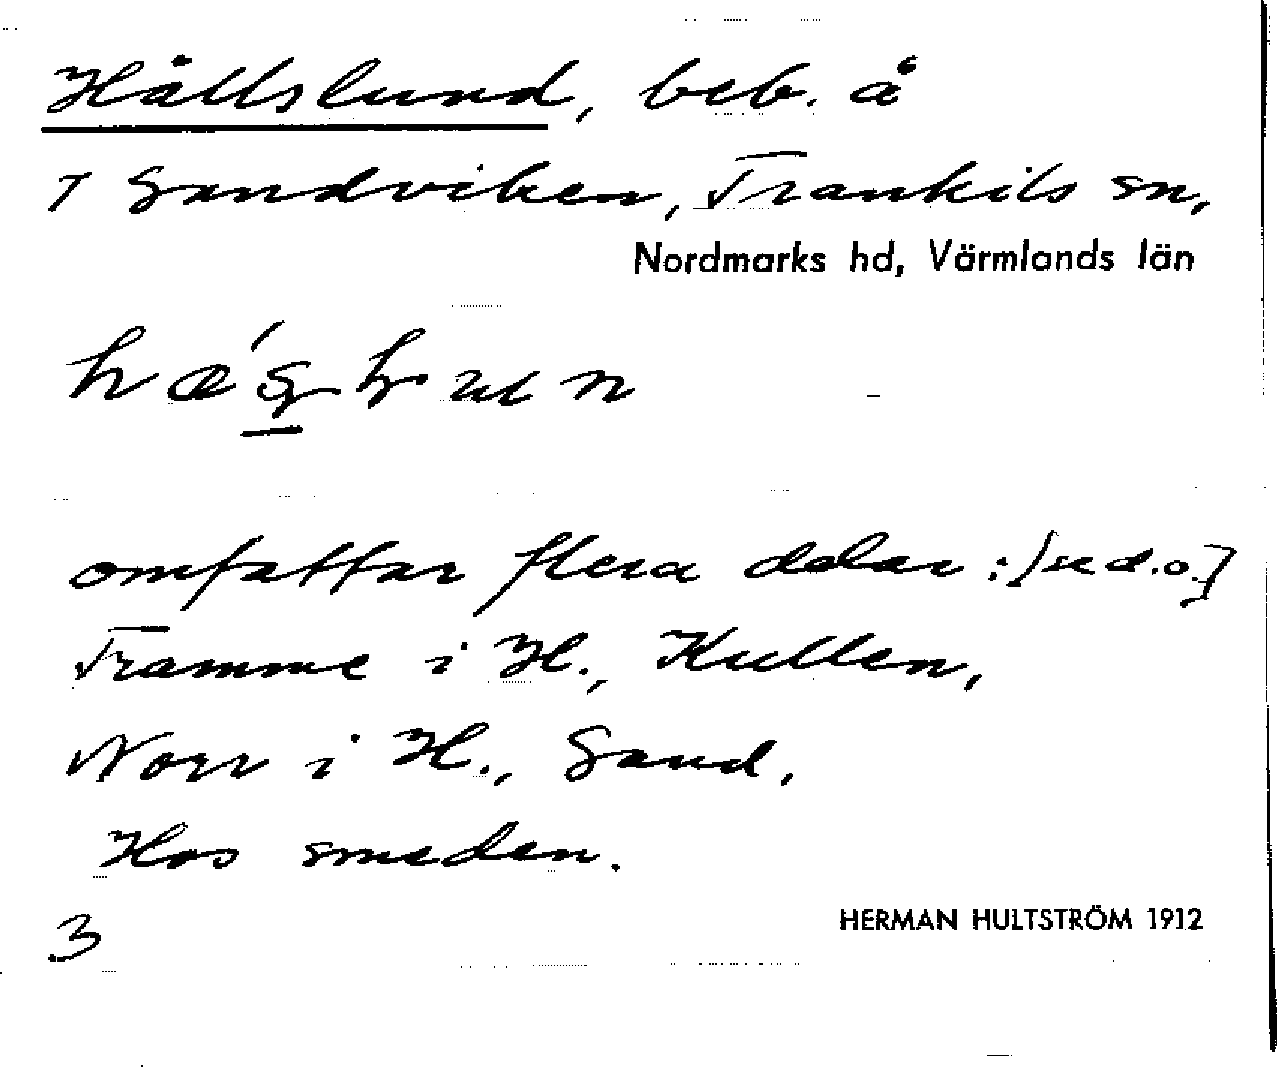 Hållslund, beb. å
7 Sandviken, Trankils sn,
Nordmarks hd, Värmlands län
omfattar flera delar: [se d.o.]
Framme i H., Kullen,
Norr i H., Sand,
Hos smeden.
3
HERMAN HULTSTRÖM 1912